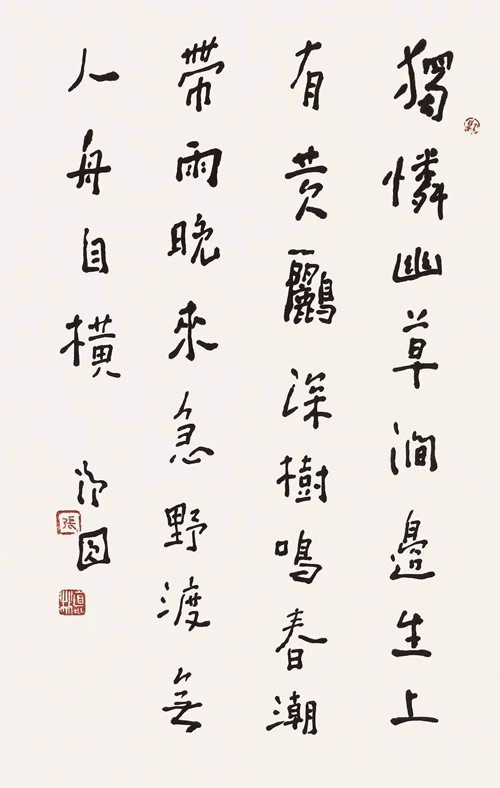 獨憐幽草澗邊生上
有黄鸝深樹鳴春潮
帶雨晚來急野渡無
人舟自橫
張